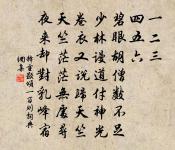 一二三四五六
碧眼胡僧數不足
少林謾道付神光
卷衣又說歸天竺
天竺茫茫無處尋
夜來却對乳峰宿
釋重顯頌一百則